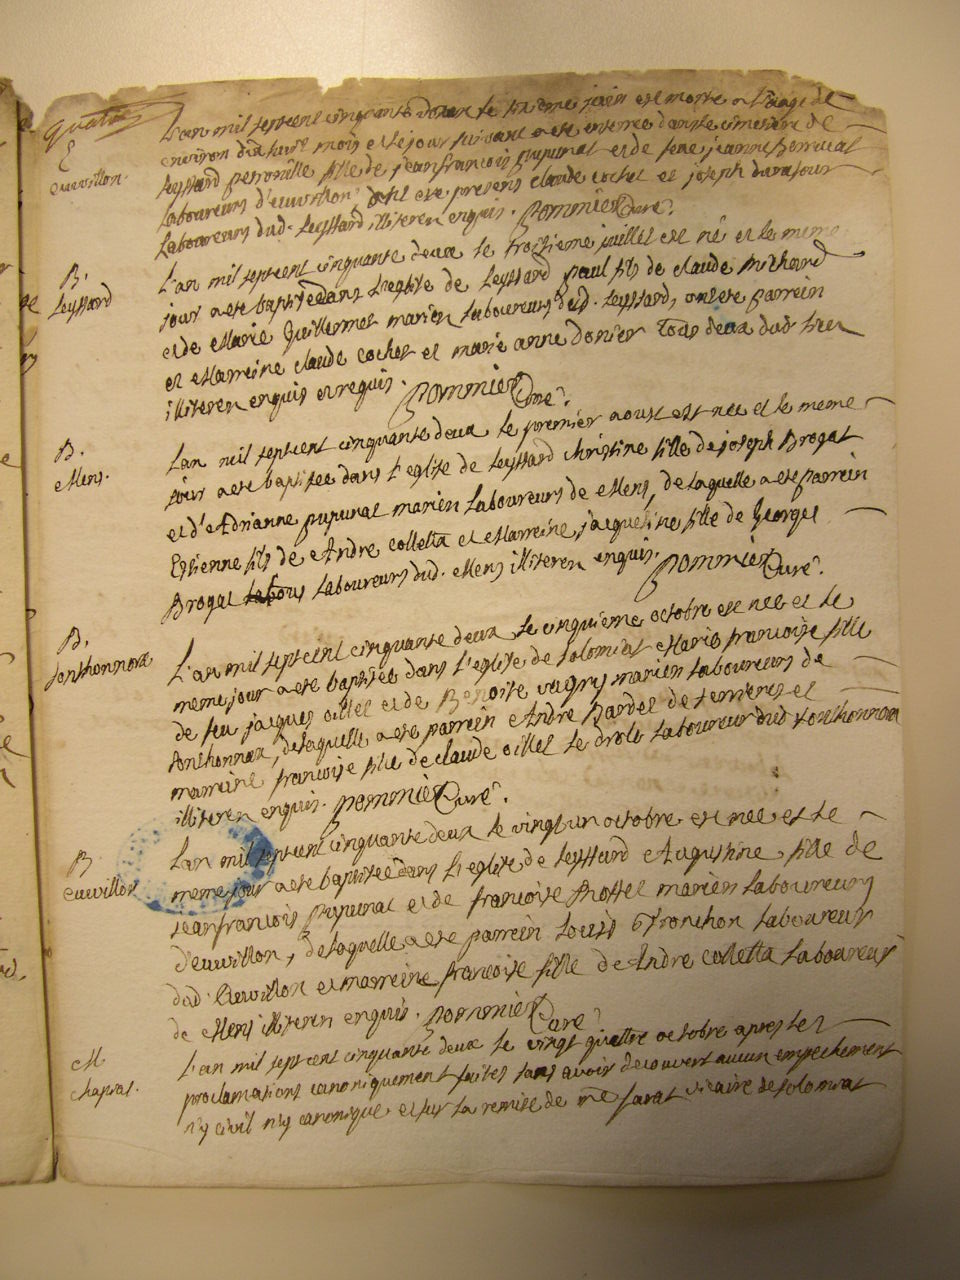 quatre
E
euvvillon.
L'an mil septcent cinquante deux le juin est morte a l'aage de
environ dixhuit mois et le jour suivant a ete enterree dans le cimetiere de
leyssard peronille fille de jeanfrancois pupunat et de feue jeanne
laboureurs d'euvvillon, ont ete presens claude cochet et joseph
laboureurs dud. leyssard illiteren enquis. pommier Curé.
B.
Leyssard
L'an mil septcent cinquante deux le troisieme juillet est né et le meme
jour a ete baptisé dans l'eglise de leyssard paul fils de claude michard
et de Marie Guillermet mariés laboureurs dud. leyssard, ont ete parrein
et Marreine claude cochet et marie anne donier tous deux dud lieu
illiteren enquis et requis. pommier Curé.
B.
Mens.
L'an mil septcent cinquante deux le premier aoust est nee et le meme
jour a ete baptisée dans l'eglise de leyssard christine fille de joseph Brogat
et d'Adrianne pupunat mariés laboureurs de Mens, de laquelle a ete parrein
Estienne fils de Andre colletta et Marreine jacqueline fille de George
Brogat labous laboureurs dud. Mens illiteren enquis. pommier Curé.
B.
sonthonnax
L'an mil septcent cinquante deux le cinquieme octobre est nee et le
meme jour a ete baptisée dans l'eglise de solomiat Marie francoise fille
de feu jacques oillet et de Benoite mariés laboureurs de
sonthonnax, de laquelle a ete parrein Andre Bardet de serrieres et
marreine francoise fille de claude oillet le drole laboureur dud sonthonnax
illiteren enquis. pommier Curé.
B
euvvillon
L'an mil septcent cinquante deux le vingt un octobre est nee et le
meme jour a ete baptisée dans l'eglise de leyssard Augustine fille de
jeanfrancois pupunat et de francoise mariés laboureurs
d'euvvillon, de laquelle a ete parrein Louis Tronchon laboureur
dud. Euvvillon et marreine francoise fille de Andre colletta laboureur
de Mens illiteren enquis. pommier Curé
M.
chaprat.
L'an mil septcent cinquante deux le vingt quattre octobre apres les
proclamations canoniquement faites sans avoir decouvert aucun empechement
n'y civil n'y canonique et sur la remise de me sarat vicaire de solomiat